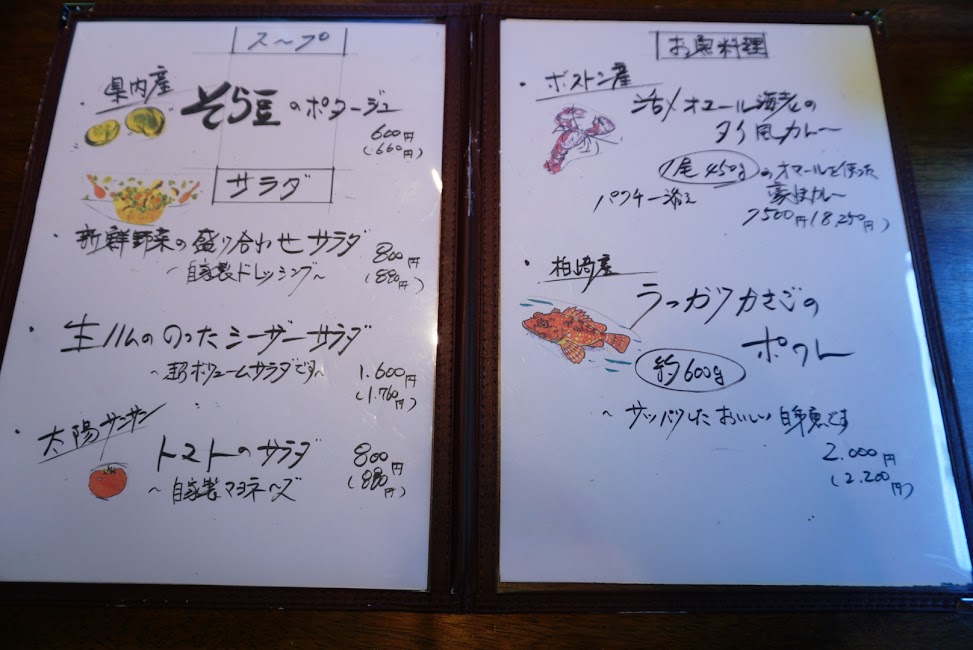 スープ
県内産
そら豆のポタージュ
600円
(660円)
サラダ
新鮮野菜の盛り合わせサラダ
800円
〜自家製ドレッシング〜
(880円)
生ハムののったシーザーサラダ
〜超ボリュームサラダです〜
1.600円
(1.760円)
太陽サンサン
トマトのサラダ
800円
〜自家製マヨネーズ
(880円)
お魚料理
ボストン産
活〆オマール海老の
タイ風カレー
1尾450gのオマールを使った
豪快カレー
パクチー添え
7500円(8.250円)
柏崎産
うっかりかさごの
ポワレ
約600g
〜サッパリしたおいしい白身魚です
2.000円
(2.200円)